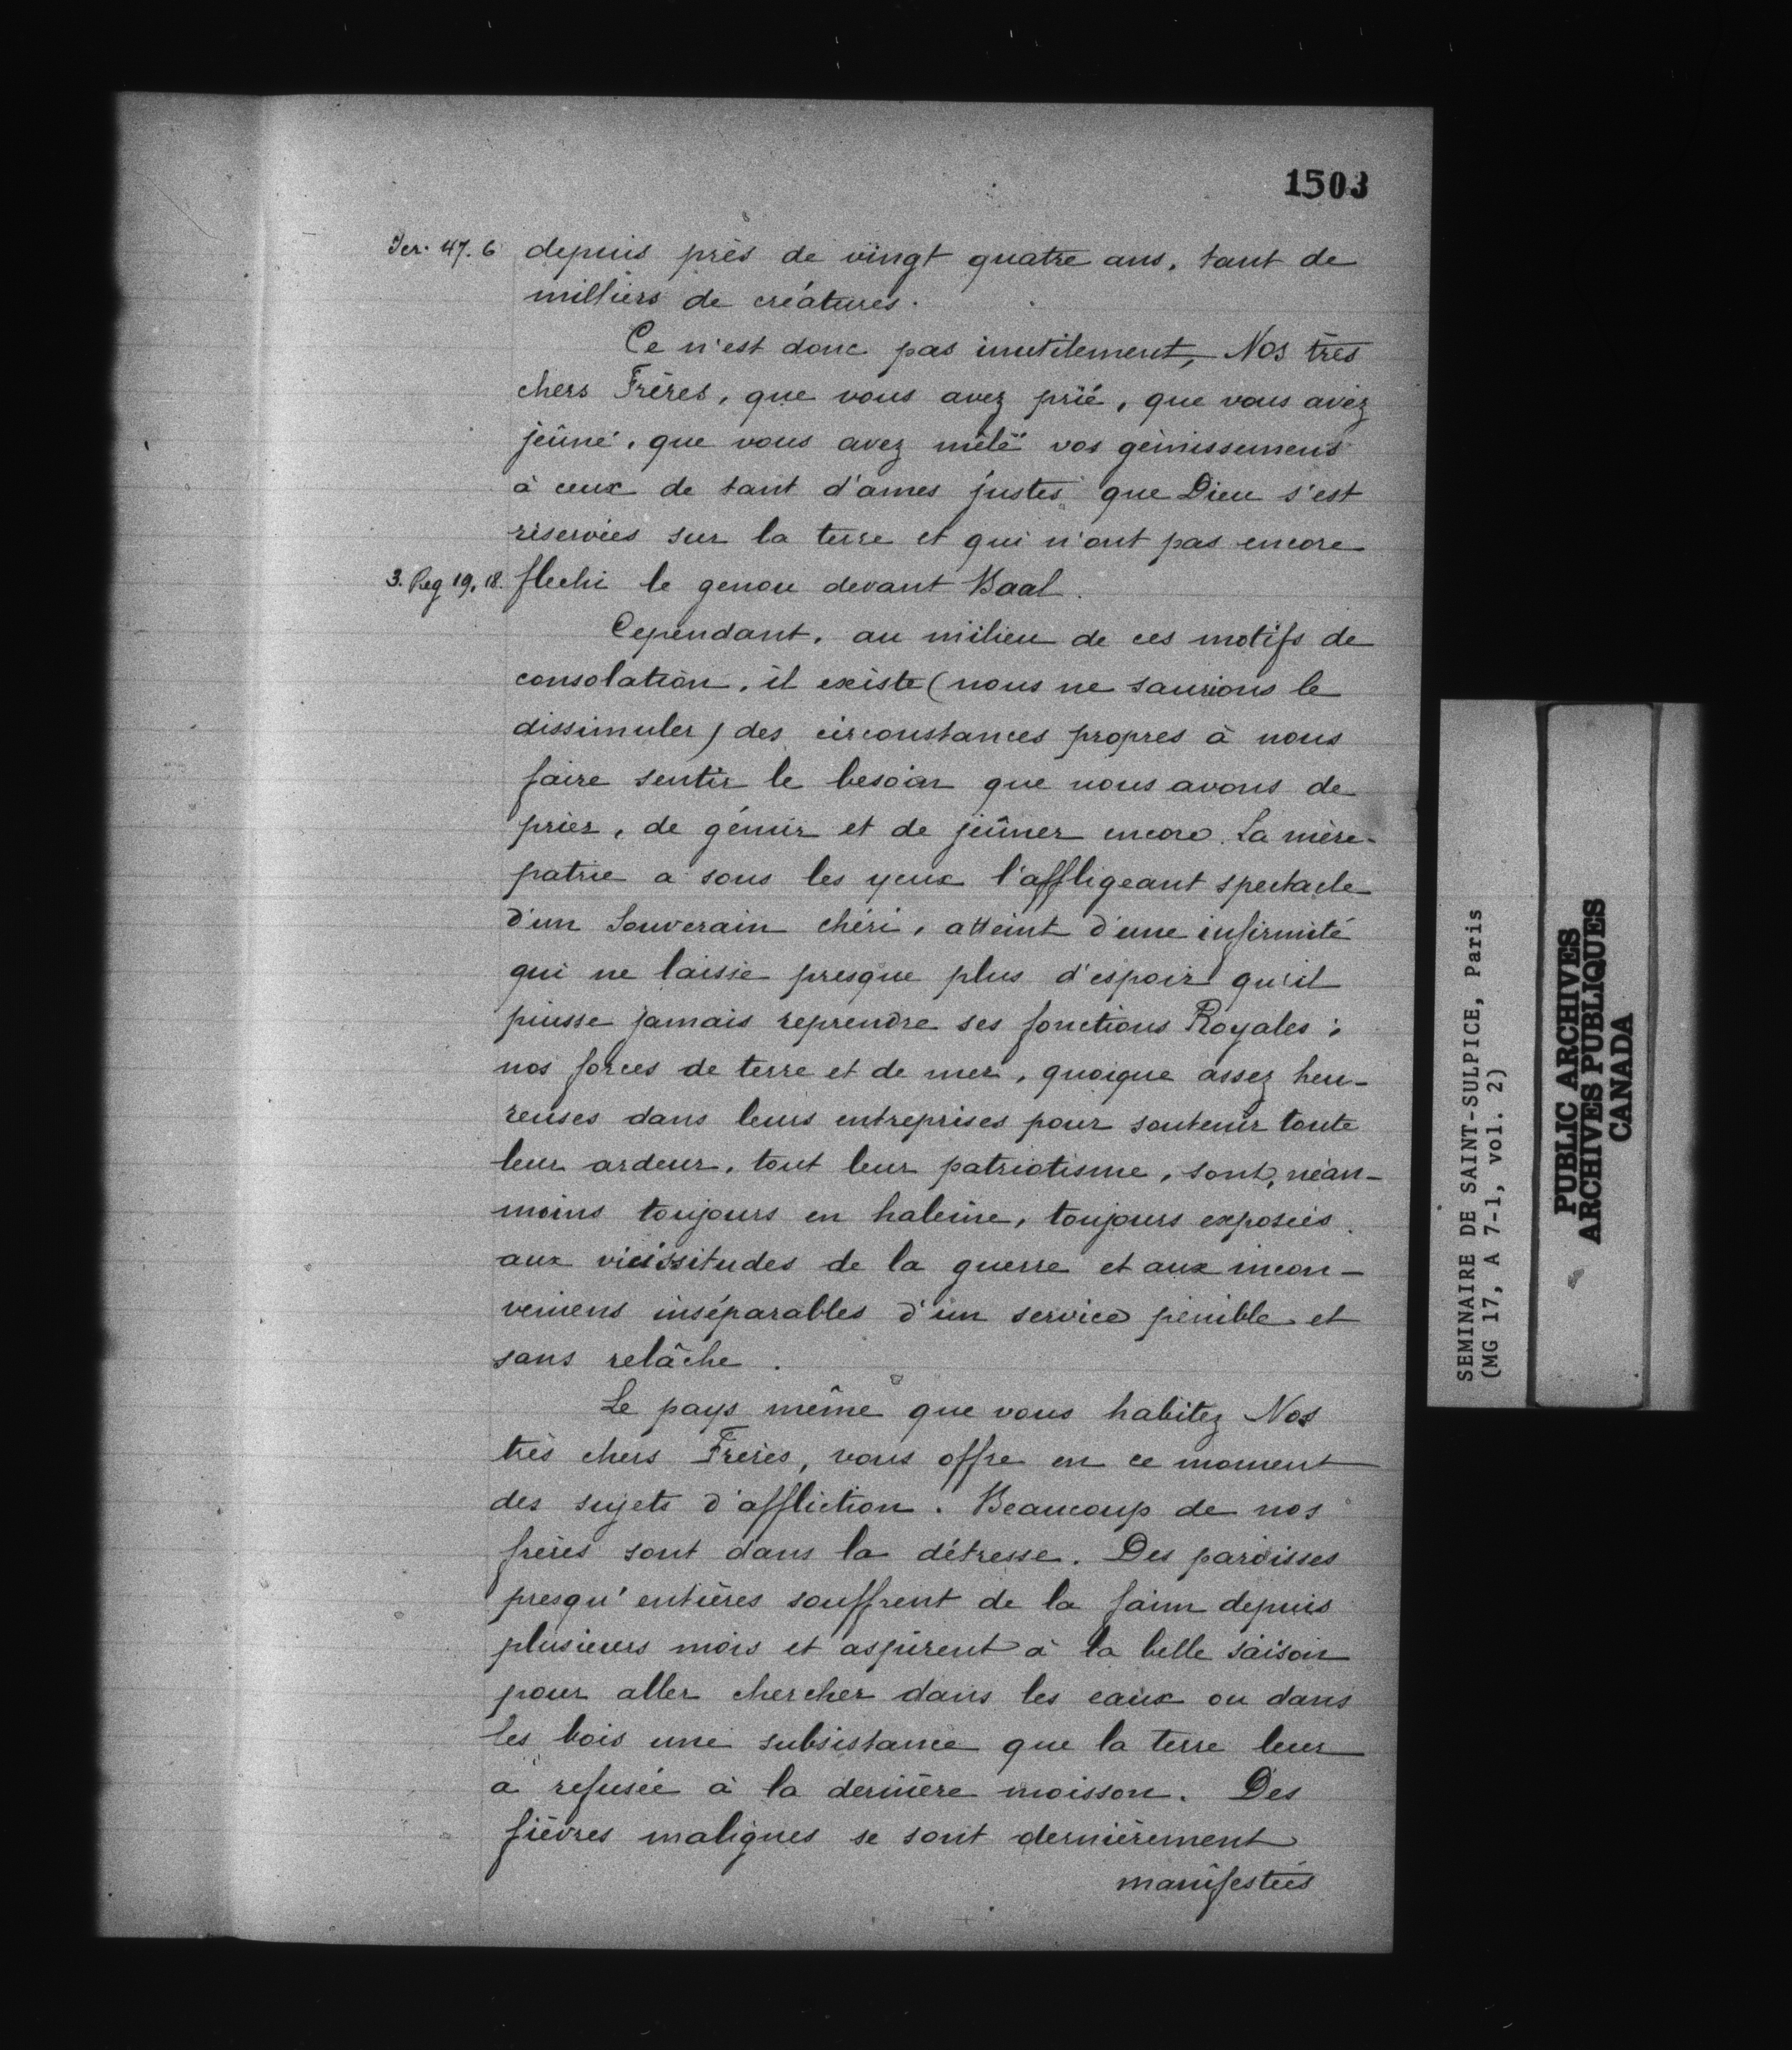 1503
Jer. 47. 6 depuis près de vingt quatre ans, tant de
milliers de créatures.
Ce n'est donc pas inutilement, Nos très
chers Frères, que vous avez prié, que vous avez
jeûné, que vous avez mêlé vos gémissemens
à ceux de tant d'ames justes que Dieu s'est
réservées sur la terre et qui n'ont pas encore
3. Reg 19, 18. flechi le genou devant Baal.
Cependant, au milieu de ces motifs de
consolation, il existe (nous ne saurions le
dissimuler) des circonstances propres à nous
faire sentir le besoin que nous avons de
prier, de gémir et de jeûner encore. La mère-
patrie a sous les yeux l'affligeant spectacle
d'un Souverain chéri, atteint d'une infirmité
qui ne laisse presque plus d'espoir qu'il
puisse jamais reprendre ses fonctions Royales;
nos forces de terre et de mer, quoique assez heu-
reuses dans leurs entreprises pour soutenir toute
leur ardeur, tout leur patriotisme, sont, néan-
moins toujours en haleine, toujours exposées
aux vicissitudes de la guerre et aux incon-
veniens inséparables d'un service pénible et
sans relâche.
Le pays même que vous habitez Nos
très chers Frères, vous offre en ce moment
des sujets d'affliction. Beaucoup de nos
frères sont dans la détresse. Des paroisses
presqu'entières souffrent de la faim depuis
plusieurs mois et aspirent à la belle saison
pour aller chercher dans les eaux ou dans
les bois une subsistance que la terre leur
a refusée à la dernière moisson. Des
fièvres malignes se sont dernièrement
manifestées
SEMINAIRE DE SAINT-SULPICE, Paris
(MG 17, A 7-1, vol. 2)
PUBLIC ARCHIVES
ARCHIVES PUBLIQUES
CANADA